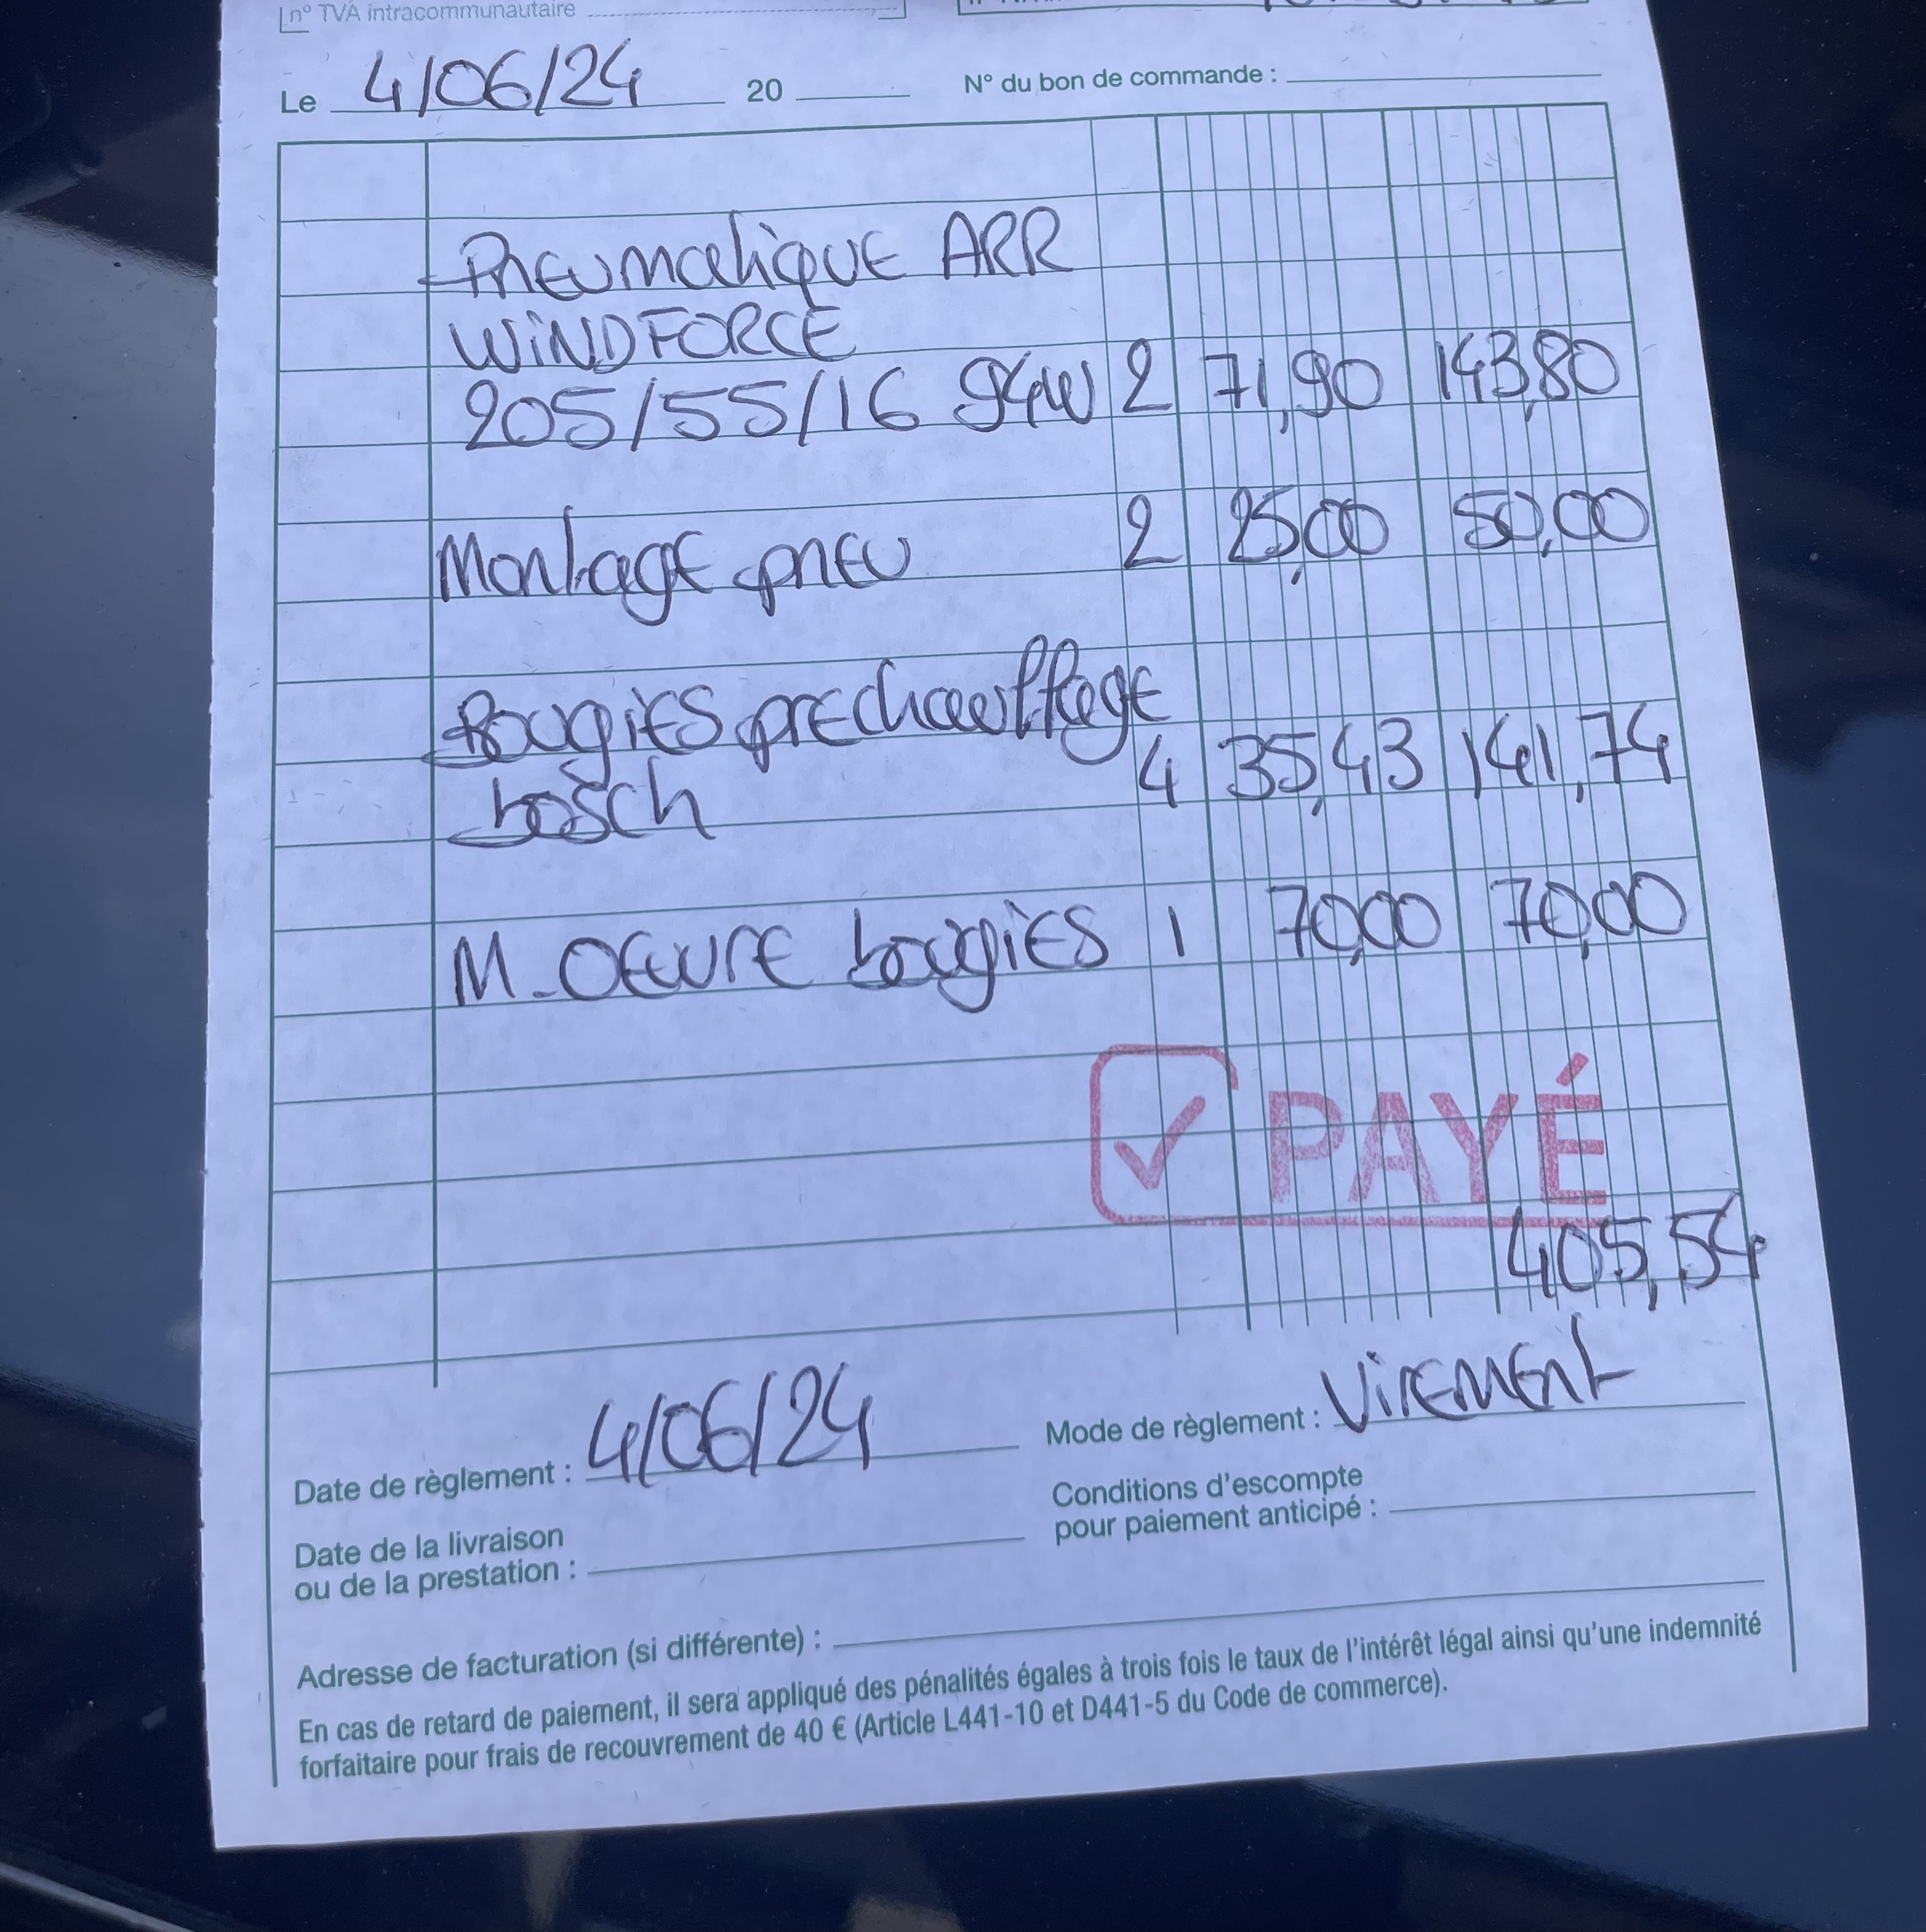 n° TVA intracommunautaire
Le 4/06/24 20 N° du bon de commande :
Pneumatique ARR
WINDFORCE
205/55/16 94W 2 71,90 143,80
Montage pneu 2 25,00 50,00
Bougies prechauffage
bosch 4 35,43 141,74
M-Oeuvre bougies 1 70,00 70,00
PAYÉ
405,54
Date de règlement : 4/06/24 Mode de règlement : Virement
Date de la livraison
ou de la prestation :
Conditions d'escompte
pour paiement anticipé :
Adresse de facturation (si différente) :
En cas de retard de paiement, il sera appliqué des pénalités égales à trois fois le taux de l'intérêt légal ainsi qu'une indemnité
forfaitaire pour frais de recouvrement de 40 € (Article L441-10 et D441-5 du Code de commerce).